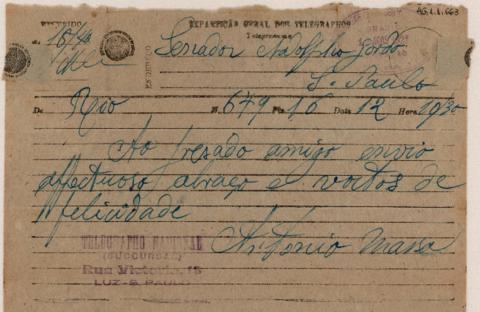 AG.1.1.663
RECEBIDO
REPARTIÇÃO GERAL DOS TELEGRAPHOS
Telegramma
de
ENDEREÇO
Senador Adolpho Gordo
S. Paulo
De Rio N. 649 Pls. 16 Data 12 Hora 1930
Ao presado amigo envio
affectuoso abraço e votos de
felicidade
Antonio Massa
TELEGRAPHO NACIONAL
(SUCCURSAL)
Rua Victoria, 15
LUZ-S. PAULO